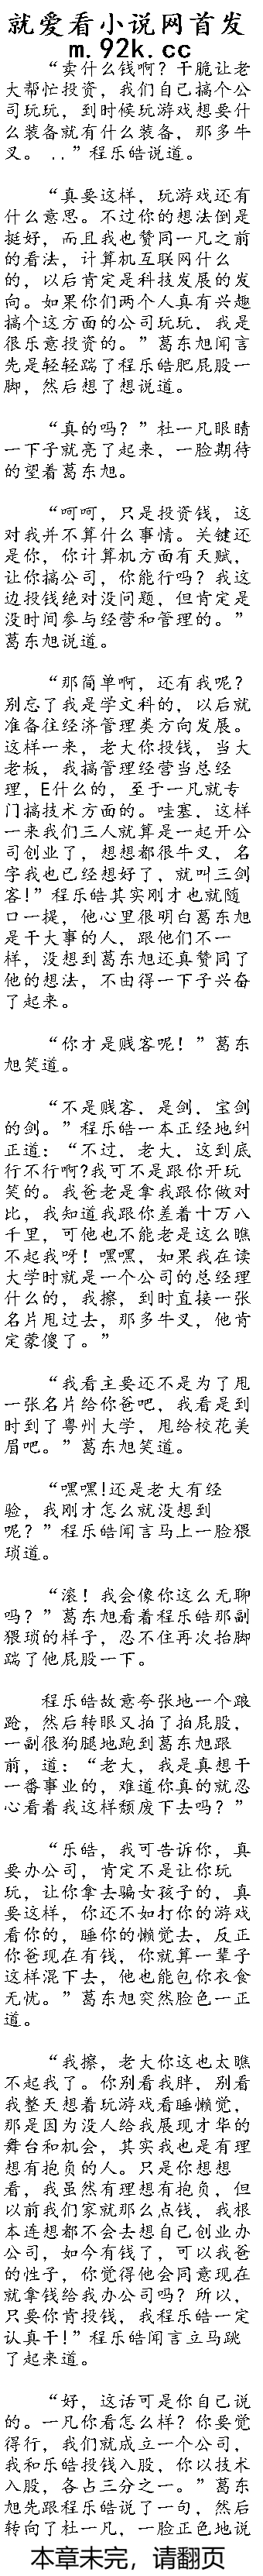 就爱看小说网首发
m.92k.cc
“卖什么钱啊？干脆让老
大帮忙投资，我们自己搞个公
司玩玩，到时候玩游戏想要什
么装备就有什么装备，那多牛
叉。..”程乐皓说道。
“真要这样，玩游戏还有
什么意思。不过你的想法倒是
挺好，而且我也赞同一凡之前
的看法，计算机互联网什么
的，以后肯定是科技发展的发
向。如果你们两个人真有兴趣
搞个这方面的公司玩玩，我是
很乐意投资的。”葛东旭闻言
先是轻轻踹了程乐皓肥屁股一
脚，然后想了想说道。
“真的吗？”杜一凡眼睛
一下子就亮了起来，一脸期待
的望着葛东旭。
“呵呵，只是投资钱，这
对我并不算什么事情。关键还
是你，你计算机方面有天赋，
让你搞公司，你能行吗？我这
边投钱绝对没问题，但肯定是
没时间参与经营和管理的。”
葛东旭说道。
“那简单啊，还有我呢？
别忘了我是学文科的，以后就
准备往经济管理类方向发展。
这样一来，老大你投钱，当大
老板，我搞管理经营当总经
理，E什么的，至于一凡就专
门搞技术方面的。哇塞，这样
一来我们三人就算是一起开公
司创业了，想想都很牛叉，名
字我也已经想好了，就叫三剑
客!”程乐皓其实刚才也就随
口一提，他心里很明白葛东旭
是干大事的人，跟他们不一
样，没想到葛东旭还真赞同了
他的想法，不由得一下子兴奋
了起来。
“你才是贱客呢！”葛东
旭笑道。
“不是贱客，是剑，宝剑
的剑。”程乐皓一本正经地纠
正道：“不过，老大，这到底
行不行啊?我可不是跟你开玩
笑的。我爸老是拿我跟你做对
比，我知道我跟你差着十万八
千里，可他也不能老是这么瞧
不起我呀！嘿嘿，如果我在读
大学时就是一个公司的总经理
什么的，我擦，到时直接一张
名片甩过去，那多牛叉，他肯
定蒙傻了。”
“我看主要还不是为了甩
一张名片给你爸吧，我看是到
时到了粤州大学，甩给校花美
眉吧。”葛东旭笑道。
“嘿嘿!还是老大有经
验，我刚才怎么就没想到
呢？”程乐皓闻言马上一脸猥
琐道。
“滚！我会像你这么无聊
吗？”葛东旭看着程乐皓那副
猥琐的样子，忍不住再次抬脚
踹了他屁股一下。
程乐皓故意夸张地一个踉
跄，然后转眼又拍了拍屁股，
一副很狗腿地跑到葛东旭跟
前，道：“老大，我是真想干
一番事业的，难道你真的就忍
心看着我这样颓废下去吗？”
“乐皓，我可告诉你，真
要办公司，肯定不是让你玩
玩，让你拿去骗女孩子的，真
要这样，你还不如打你的游戏
看你的，睡你的懒觉去，反正
你爸现在有钱，你就算一辈子
这样混下去，他也能包你衣食
无忧。”葛东旭突然脸色一正
道。
“我擦，老大你这也太瞧
不起我了。你别看我胖，别看
我整天想着玩游戏看睡懒觉，
那是因为没人给我展现才华的
舞台和机会，其实我也是有理
想有抱负的人。只是你想想
看，我虽然有理想有抱负，但
以前我们家就那么点钱，我根
本连想都不会去想自己创业办
公司，如今有钱了，可以我爸
的性子，你觉得他会同意现在
就拿钱给我办公司吗？所以，
只要你肯投钱，我程乐皓一定
认真干!”程乐皓闻言立马跳
了起来道。
“好，这话可是你自己说
的。一凡你看怎么样？你要觉
得行，我们就成立一个公司，
我和乐皓投钱入股，你以技术
入股，各占三分之一。”葛东
旭先跟程乐皓说了一句，然后
转向了杜一凡，一脸正色地说
本章未完，请翻页